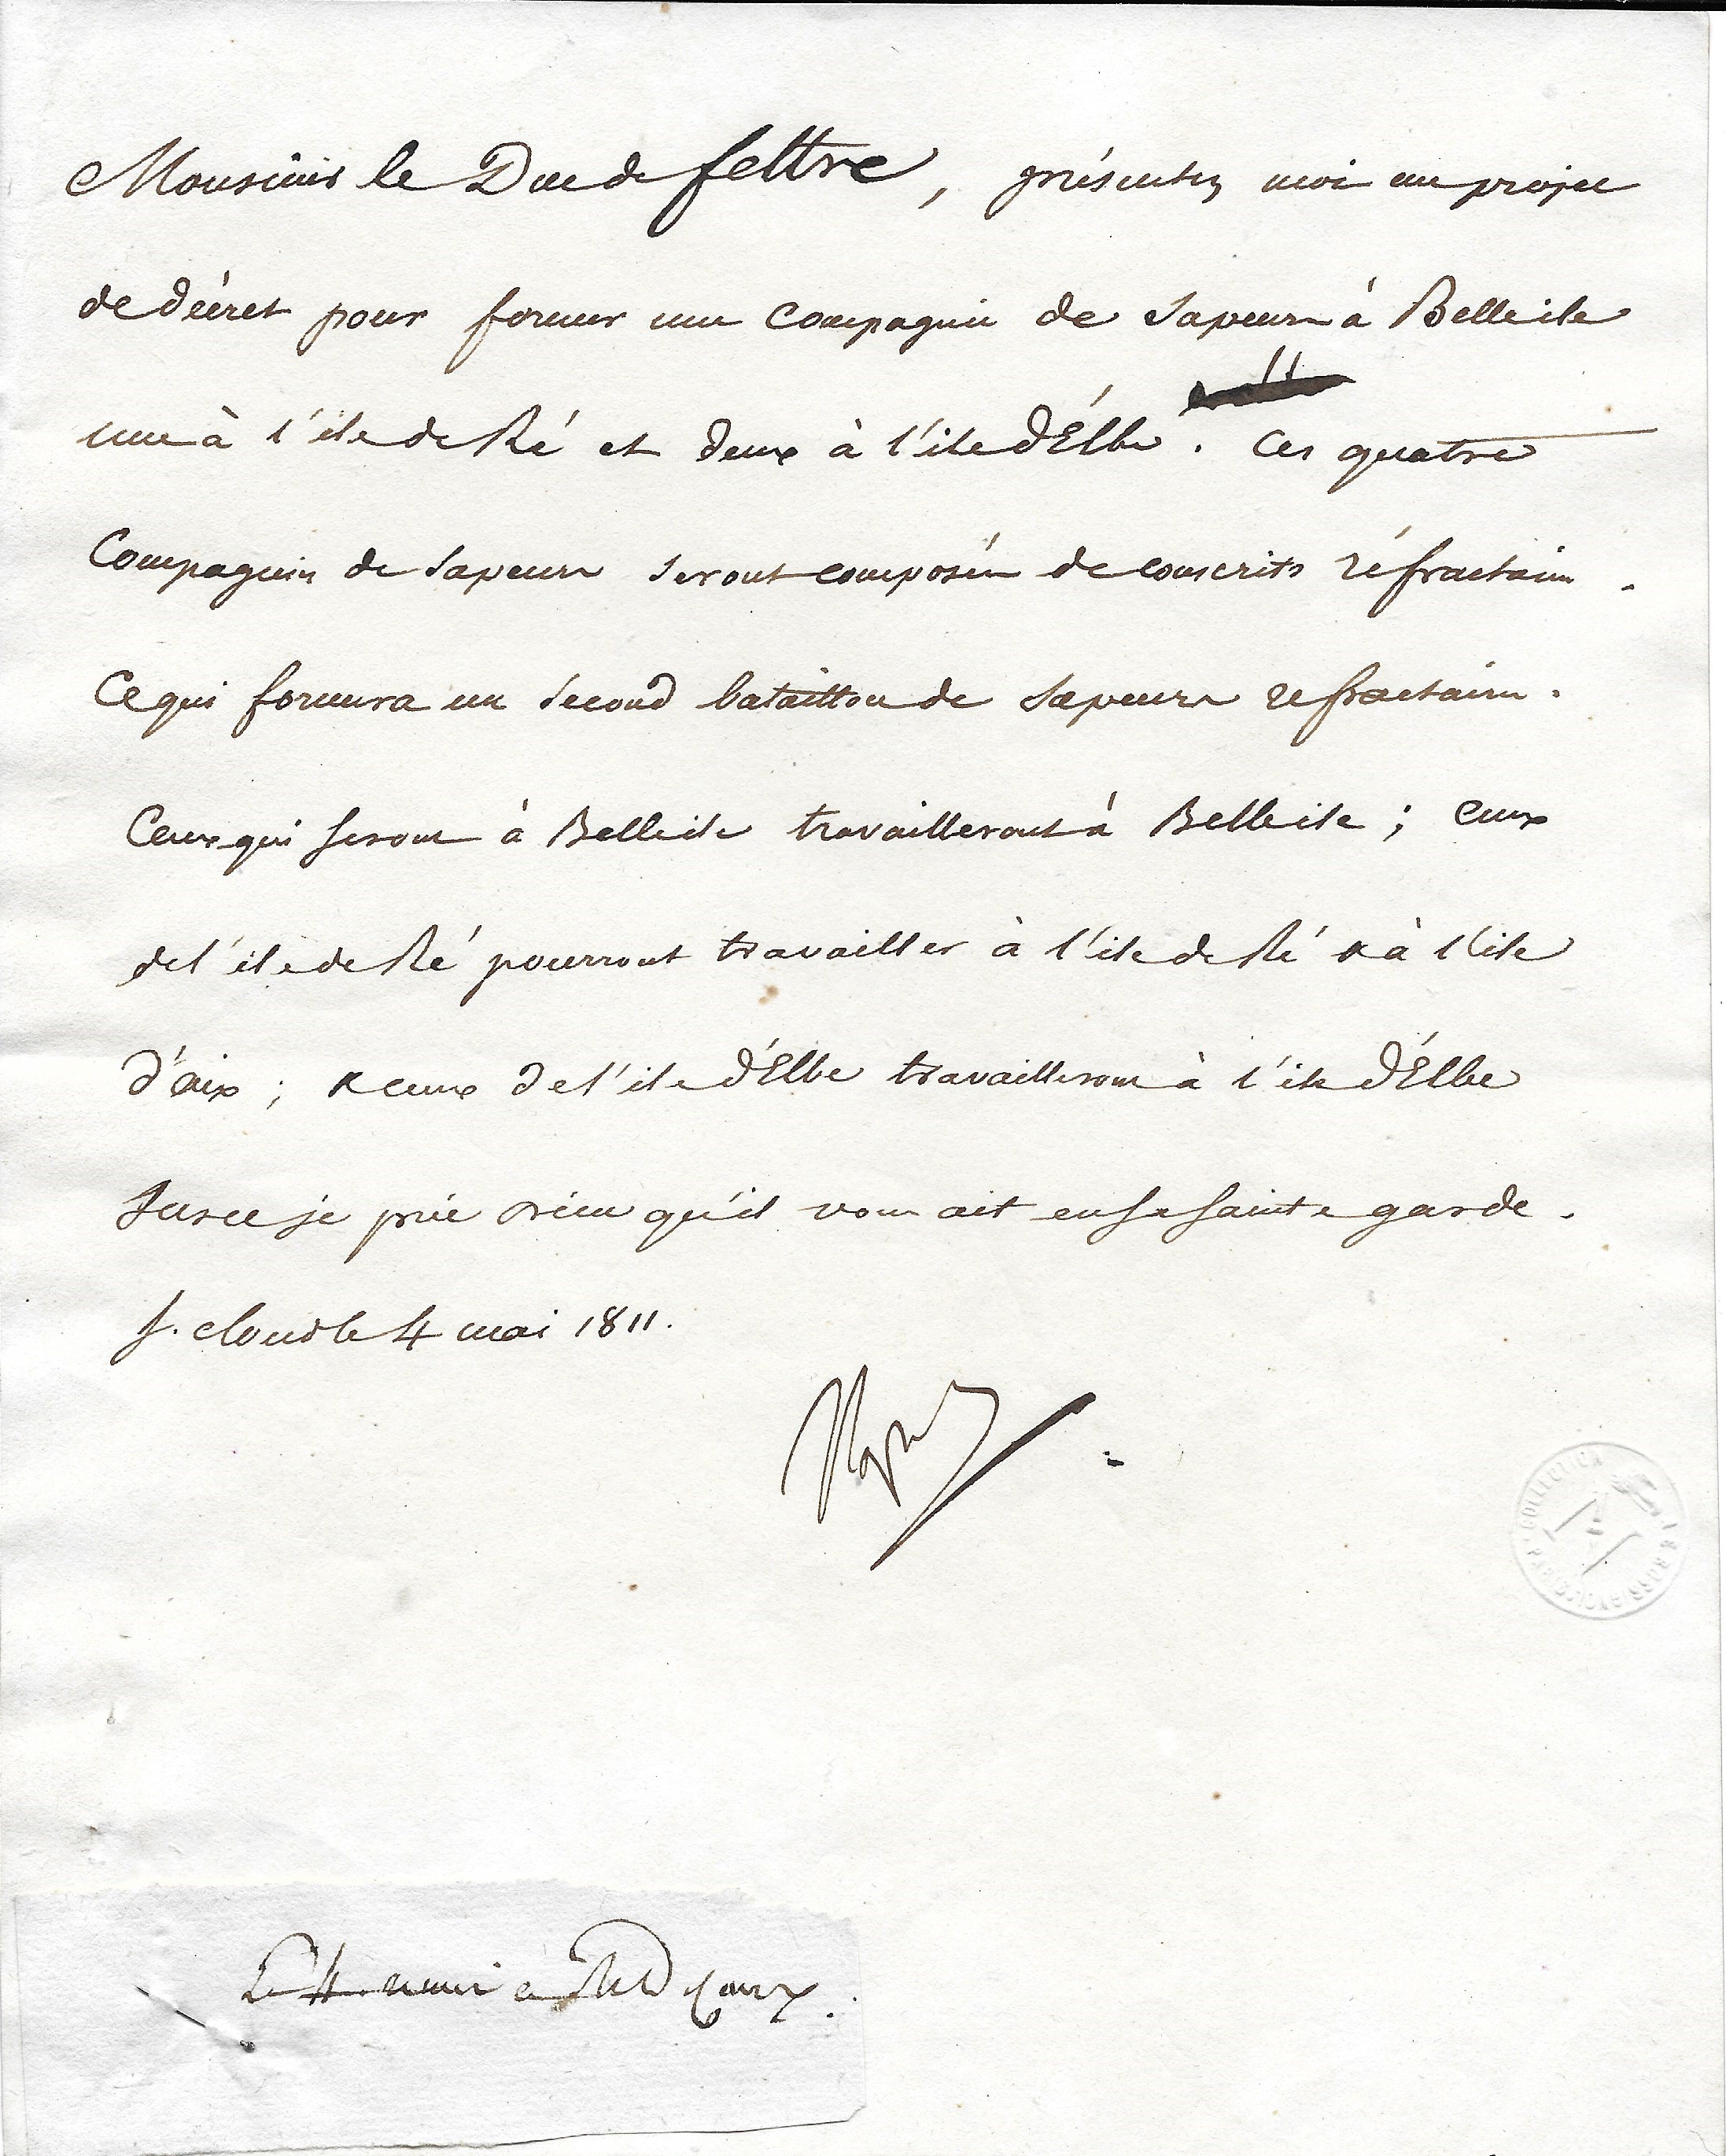 Monsieur le Duc de feltre, présentez moi un projet
de décret pour former une Compagnie de Sapeurs à Belleile
une à l'ile de Ré et deux à l'ile d'Elbe. Ces quatre
Compagnies de Sapeurs seront composées de conscrits réfractaires.
Ce qui formera un Second bataillon de Sapeurs refractaires.
Ceux qui seront à Belleile travailleront à Belleile; ceux
de l'ile de Ré pourront travailler à l'ile de Ré & à l'ile
d'aix; & ceux de l'ile d'Elbe travailleront à l'ile d'Elbe
Sur ce je prie Dieu qu'il vous ait en sa sainte garde.
St. cloud le 4 mai 1811.
Np
COLLECTION